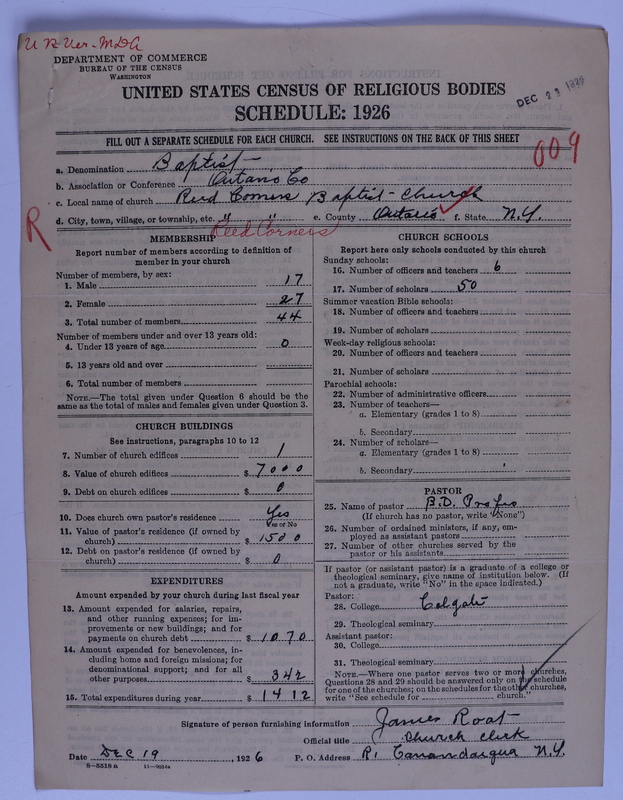 U.S. Ver- M.D.A
DEPARTMENT OF COMMERCE
BUREAU OF THE CENSUS
WASHINGTON
DEC 23 1926
UNITED STATES CENSUS OF RELIGIOUS BODIES
SCHEDULE: 1926
FILL OUT A SEPARATE SCHEDULE FOR EACH CHURCH. SEE INSTRUCTIONS ON THE BACK OF THIS SHEET
009
a. Denomination Baptist
b. Association or Conference Ontario Co
c. Local name of church Reed Corners Baptist-Church
d. City, town, village, or township, etc. " " e. County Ontario f. State N.Y.
R
Reed Corners
MEMBERSHIP
Report number of members according to definition of
member in your church
Number of members, by sex:
1. Male 17
2. Female 27
3. Total number of members 44
Number of members under and over 13 years old:
4. Under 13 years of age 0
5. 13 years old and over
6. Total number of members
NOTE.—The total given under Question 6 should be the
same as the total of males and females given under Question 3.
CHURCH BUILDINGS
See instructions, paragraphs 10 to 12
7. Number of church edifices 1
8. Value of church edifices $ 7000
9. Debt on church edifices $ 0
10. Does church own pastor's residence Yes
Yes or No
11. Value of pastor's residence (if owned by
church) $ 1500
12. Debt on pastor's residence (if owned by
church) $ 0
EXPENDITURES
Amount expended by your church during last fiscal year
13. Amount expended for salaries, repairs,
and other running expenses; for im-
provements or new buildings; and for
payments on church debt $ 1070
14. Amount expended for benevolences, in-
cluding home and foreign missions; for
denominational support; and for all
other purposes $ 342
15. Total expenditures during year $ 1412
CHURCH SCHOOLS
Report here only schools conducted by this church
Sunday schools:
16. Number of officers and teachers 6
17. Number of scholars 50
Summer vacation Bible schools:
18. Number of officers and teachers
19. Number of scholars
Week-day religious schools:
20. Number of officers and teachers
21. Number of scholars
Parochial schools:
22. Number of administrative officers
23. Number of teachers—
a. Elementary (grades 1 to 8)
b. Secondary
24. Number of scholars—
a. Elementary (grades 1 to 8)
b. Secondary
PASTOR
25. Name of pastor B.D.
(If church has no pastor, write "None")
26. Number of ordained ministers, if any, em-
ployed as assistant pastors
27. Number of other churches served by the
pastor or his assistants
If pastor (or assistant pastor) is a graduate of a college or
theological seminary, give name of institution below. (If
not a graduate, write "No" in the space indicated.)
Pastor:
28. College Colgate
29. Theological seminary
Assistant pastor:
30. College
31. Theological seminary
NOTE.—Where one pastor serves two or more churches,
Questions 28 and 29 should be answered only on the schedule
for one of the churches; on the schedules for the other churches,
write "See schedule for church."
Signature of person furnishing information James Root
Official title Church Clerk
Date DEC 19 1926 P. O. Address R1 Canandaigua N.Y.
8—5318 a 11—9051a